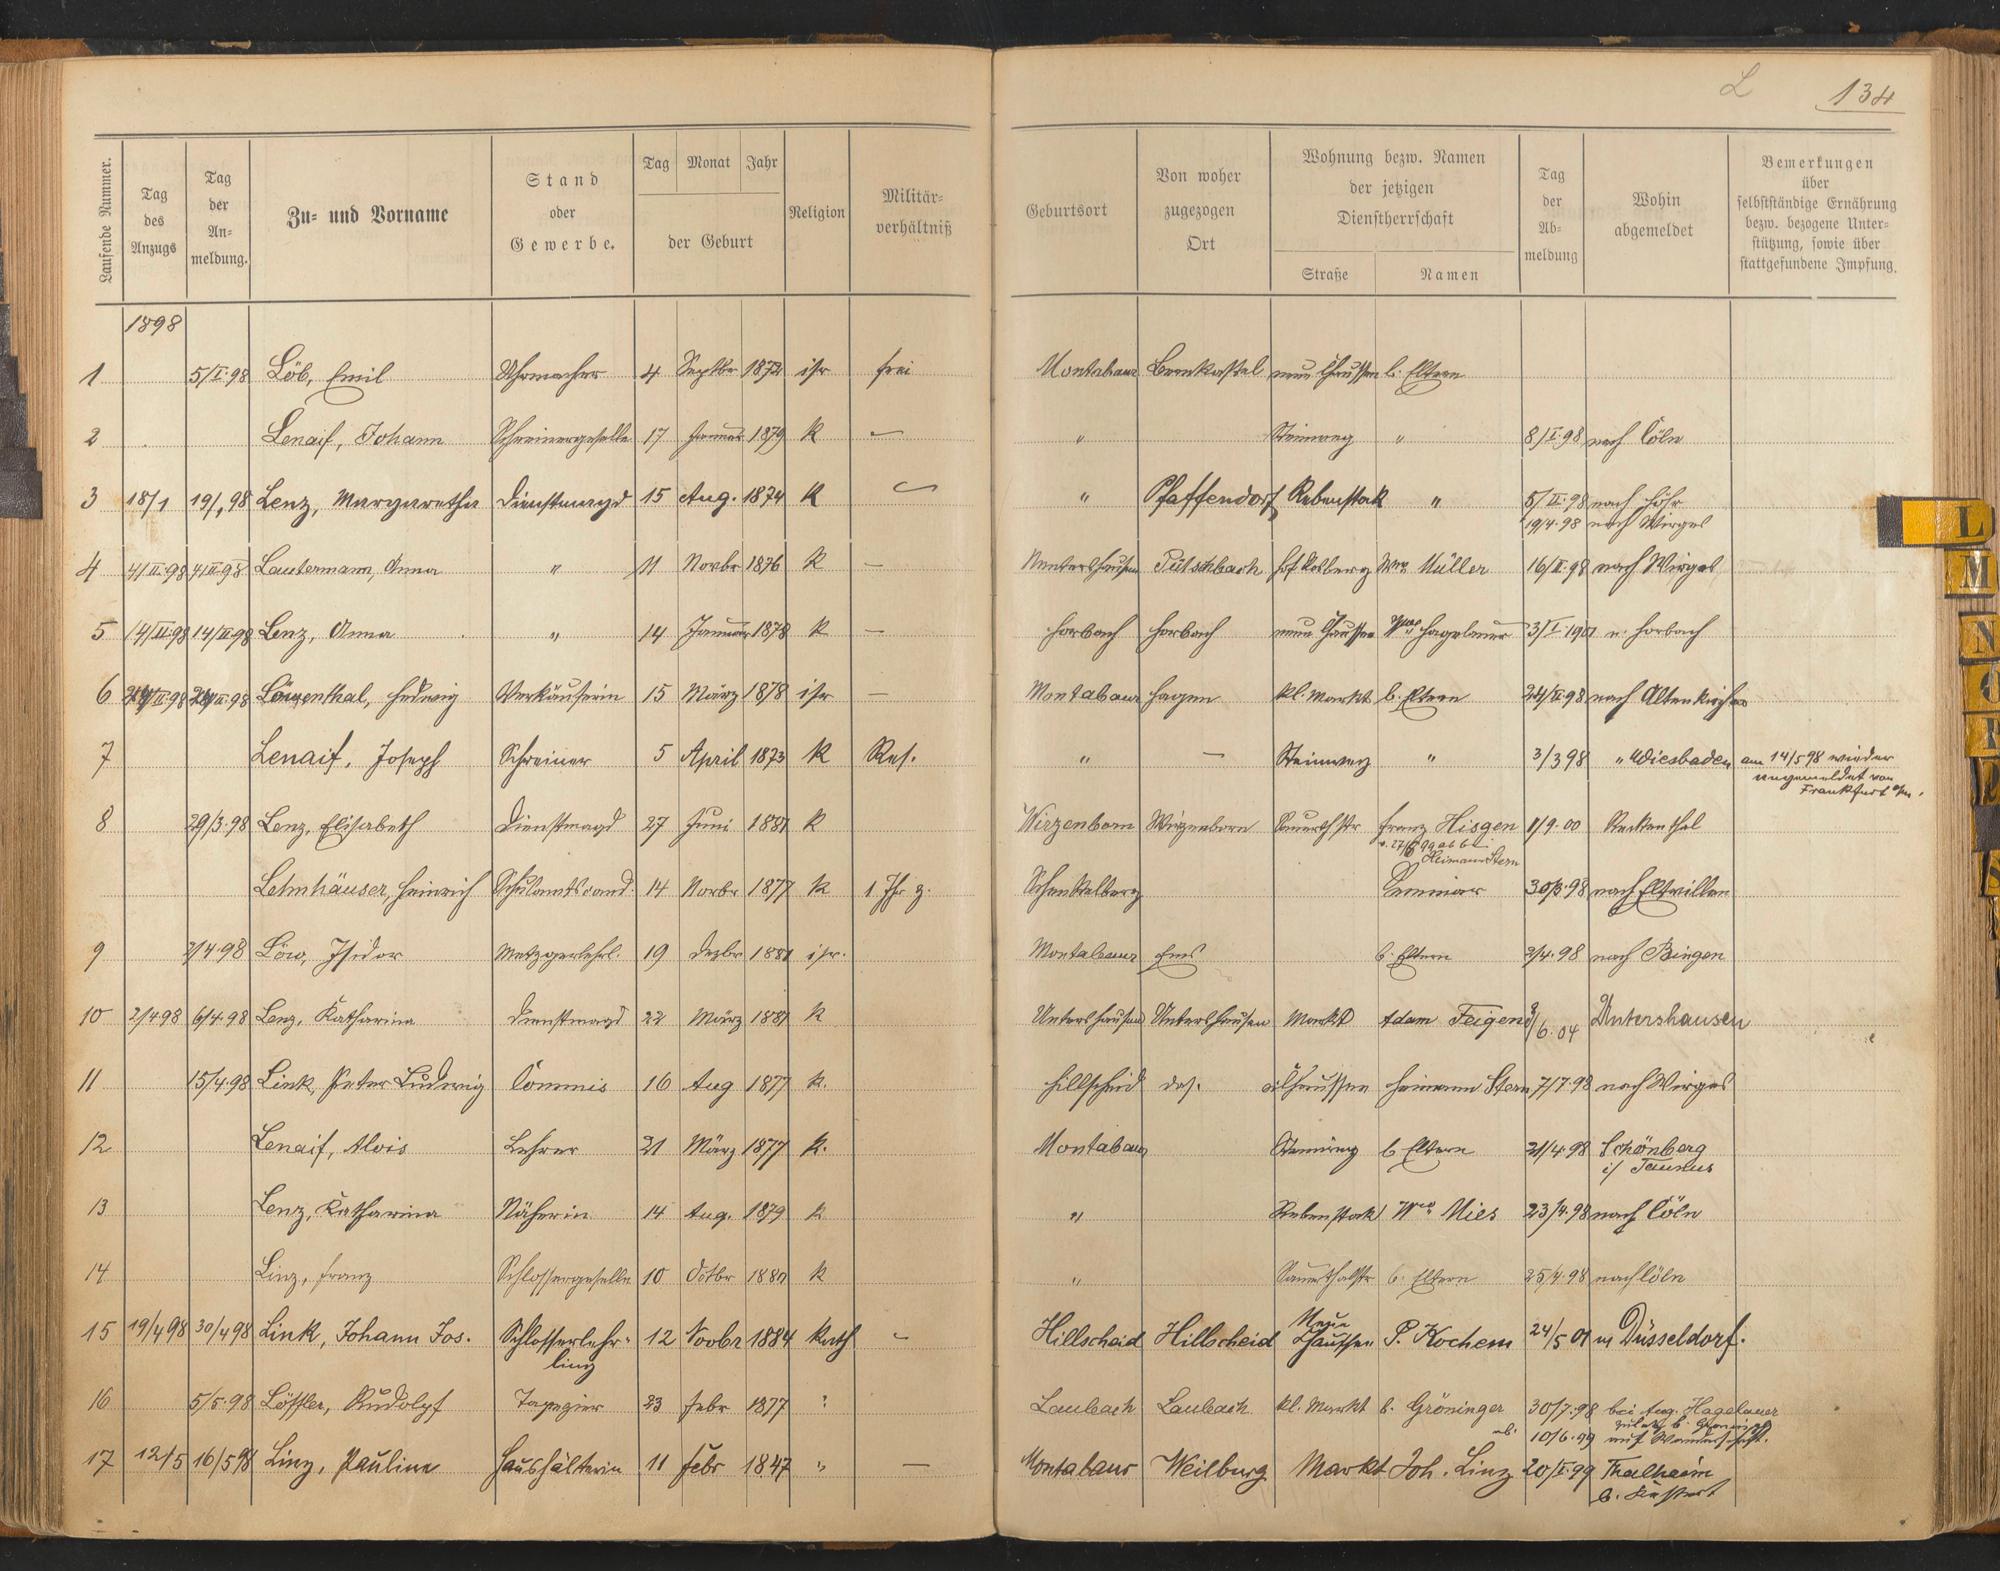 L 134
Laufende Nummer. Tag des Anzugs Tag der An-meldung. Zu- und Vorname Stand oder Gewerbe. Tag Monat Jahr der Geburt Religion Militär-verhältniß Geburtsort Von woher zugezogen Ort Wohnung bezw. Namen der jetzigen Dienstherrschaft Straße Namen Tag der Ab-meldung Wohin abgemeldet Bemerkungen über selbstständige Ernährung bezw. bezogene Unter-stützung, sowie über stattgefundene Impfung.
1898
1 5/I.98 Löb, Emil Uhrmacher 4 Septbr 1872 isr frei Montabaur Bernkastel neue Chaussee b. Eltern
2 Lenaif, Johann Schreinergeselle 17 Januar 1879 k — " Steinweg " 8/I.98 nach Cöln
3 18/1 19/1 98 Lenz, Margaretha Dienstmagd 15 Aug. 1874 k — " Pfaffendorf Rebenstock " 5/II.98 nach Höhr
19/4.98 nach Wirges
4 4/II.98 4/II.98 Lautermann, Anna " 11 Novbr 1876 k — Nentershausen Pütschbach Wwe Müller 16/II.98 nach Wirges
5 14/II.98 14/II.98 Lenz, Anna " 14 Januar 1878 k — Horbach Horbach neue Chaussee Wwe Hagelauer 3/I 1901 n. Horbach
6 Löwenthal, Hedwig Verkäuferin 15 März 1878 isr — Montabaur Hagen kl. Markt b. Eltern 24/II.98 nach Altenkirchen
7 Lenaif, Joseph Schreiner 5 April 1873 k Res. " — Steinweg " 3/3 98 " Wiesbaden am 14/5 98 wieder
angemeldet von
Frankfurt a/M.
8 29/3.98 Lenz, Elisabeth Dienstmagd 27 Juni 1881 k Wirzenborn Wirzenborn Franz Hisgen 1/9.00 Reckenthal
Heimann Stern
Lehnhäuser, Heinrich Schulamtscand. 14 Novbr 1877 k 1 Jhr z. Schenkelberg Seminar 30/3.98 nach Eltville
9 2/4.98 Löw, Isidor Metzgerlehrl. 19 Dezbr 1881 isr. Montabaur Ems b. Eltern 2/4.98 nach Bingen
10 2/4 98 6/4.98 Lenz, Katharina Dienstmagd 22 März 1881 k Untershausen Untershausen Markt Adam Feigen 9/6.04 Untershausen
11 15/4.98 Link, Peter Ludwig Commis 16 Aug 1877 k. Hillscheid das. Heimann Stern 7/7.98 nach Wirges
12 Lenaif, Alois Lehrer 21 März 1877 k. Montabaur Steinweg b Eltern 21/4.98 Schönberg
i/ Taunus
13 Lenz, Katharina Näherin 14 Aug. 1879 k " Rebenstock Wwe Mies 23/4.98 nach Cöln
14 Linz, Franz Schlossergeselle 10 Octbr k " Sauerthalstr b. Eltern 25/4.98 nach Cöln
15 19/4 98 30/4 98 Link, Johann Jos. Schlosserlehr-
ling 12 Novbr 1884 kath — Hillscheid Hillscheid Neue Chaussee P. Kochem 24/5 01 n Düsseldorf.
16 5/5.98 Löffler, Rudolf Tapezier 23 Febr 1877 " Laubach Laubach kl. Markt b. Gröninger 30/7.98 bei Aug. Hagelauer
10/6.99 auf Wanderschaft.
17 12/5 16/5 98 Linz, Pauline Haushälterin 11 Febr 1847 " — Montabaur Weilburg Markt Joh. Linz 20/I.99 Thalheim
L
M
N
O